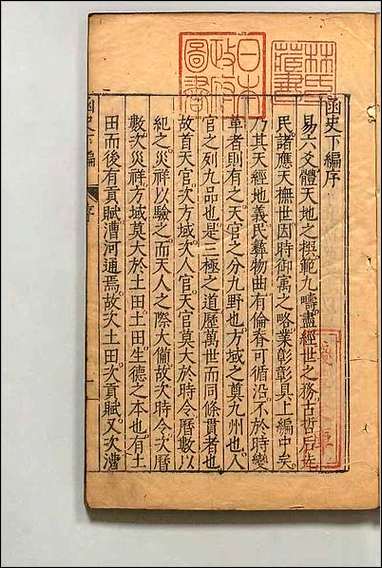 函史下編序
易六爻體天地之撰範九疇盡經世之務古哲后先
民諸應天撫世因時御寓之略業彰彰具上編中矣
乃其天經地義民彝物曲有倫脊可循沿不於時變
革者則有之天官之分九野也方域之奠九州也人
官之列九品也是三極之道歷萬世而同條貫者也
故首天官次方域次人官天官莫大於時令曆數以
紀之災祥以驗之而天人之際大備故次時令次曆
數次災祥方域莫大於土田土田生德之本也有土
田而後有貢賦漕河通焉故次土田次貢賦又次漕
函史下編
序
林氏
藏書
日本
政府
圖書
文庫